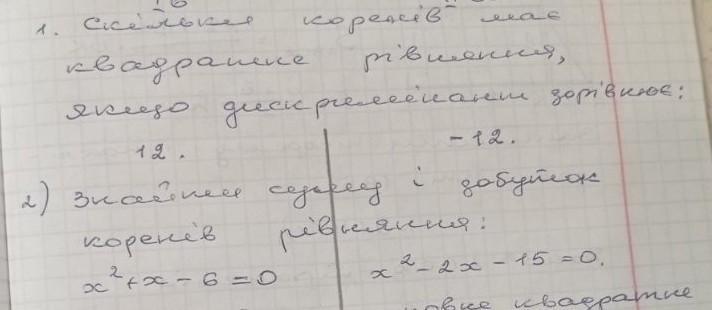 1. скільки коренів має
квадратне рівняння,
якщо дискримінант дорівнює:
12. -12.
2) Знайти суму і добуток
коренів рівняння:
x²+x-6=0 x²-2x-15=0.
квадратне